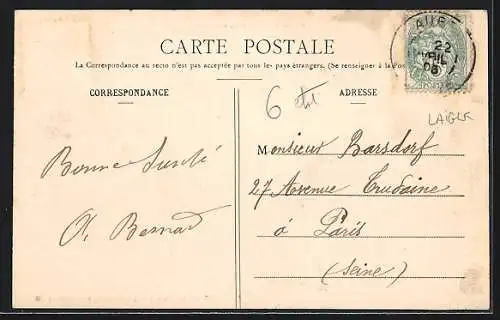 CARTE POSTALE
La Correspondance au recto n'est pas acceptée par tous les pays étrangers. (Se renseigner à la Pos
CORRESPONDANCE
ADRESSE
6
LAIGLE
Bonne Santé
A. Bernard
Monsieur Barsdorf
27 Avenue Trudaine
à Paris
(Seine)
22